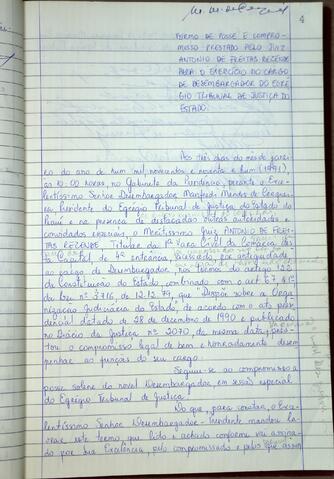 4
TERMO DE POSSE E COMPRO-
MISSO PRESTADO PELO JUIZ
ANTONIO DE FREITAS REZENDE
PARA O EXERCÍCIO NO CARGO
DE DESEMBARGADOR DO EGRÉ-
GIO TRIBUNAL DE JUSTIÇA DO
ESTADO.
Aos três dias do mês de janei-
ro do ano de hum mil, novecentos e noventa e hum (1991),
às 10:00 horas, no Gabinete da Presidência, perante o Exce-
lentíssimo Senhor Desembargador Manfredi Mendes de Cerquei-
ra, Presidente do Egrégio Tribunal de Justiça do Estado do
Piauí e na presença de destacadas outras autoridades e
convidados especiais, o Meritíssimo Juiz ANTONIO DE FREI-
TAS REZENDE, Titular da 1ª Vara Cível da Comarca des-
ta Capital, de 4ª entrância, acessado, por antiguidade,
ao cargo de Desembargador, nos termos do artigo 122
da Constituição do Estado, combinado com o art. 67, § 1º
da Lei nº 3.716, de 12.12.79, que "Dispõe sobre a Orga-
nização Judiciária do Estado", de acordo com ato presi-
dencial datado de 28 de dezembro de 1990 e publicado
no Diário da Justiça nº 2070, da mesma data, pres-
tou o compromisso legal de bem e honradamente desem-
penhar as funções do seu cargo.
Seguiu-se ao compromisso a
posse solene do novel Desembargador, em sessão especial
do Egrégio Tribunal de Justiça.
Do que, para constar, o Exce-
lentíssimo Senhor Desembargador-Presidente mandou la-
vrar este termo, que lido e achado conforme vai assina-
do por Sua Excelência, pelo compromissado e pelos que assim